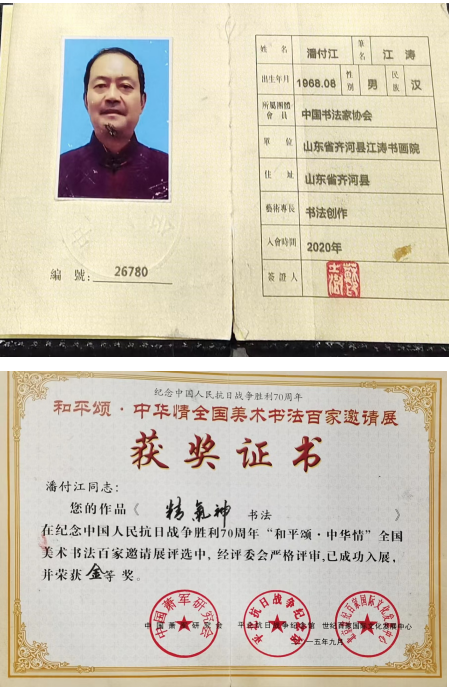 姓名 潘付江 笔名 江涛
出生年月 1968.08 性别 男 民族 汉
所屬團體會員 中国书法家协会
單位 山东省齐河县江涛书画院
住址 山东省齐河县
藝術專長 书法创作
入會時間 2020年
簽證人
編號: 26780
纪念中国人民抗日战争胜利70周年
和平颂·中华情全国美术书法百家邀请展
获奖证书
潘付江同志:
您的作品《 精氣神 书法 》
在纪念中国人民抗日战争胜利70周年“和平颂·中华情”全国
美术书法百家邀请展评选中,经评委会严格评审,已成功入展,
并荣获 金 等奖。
中国萧军研究会
中国萧军研究会